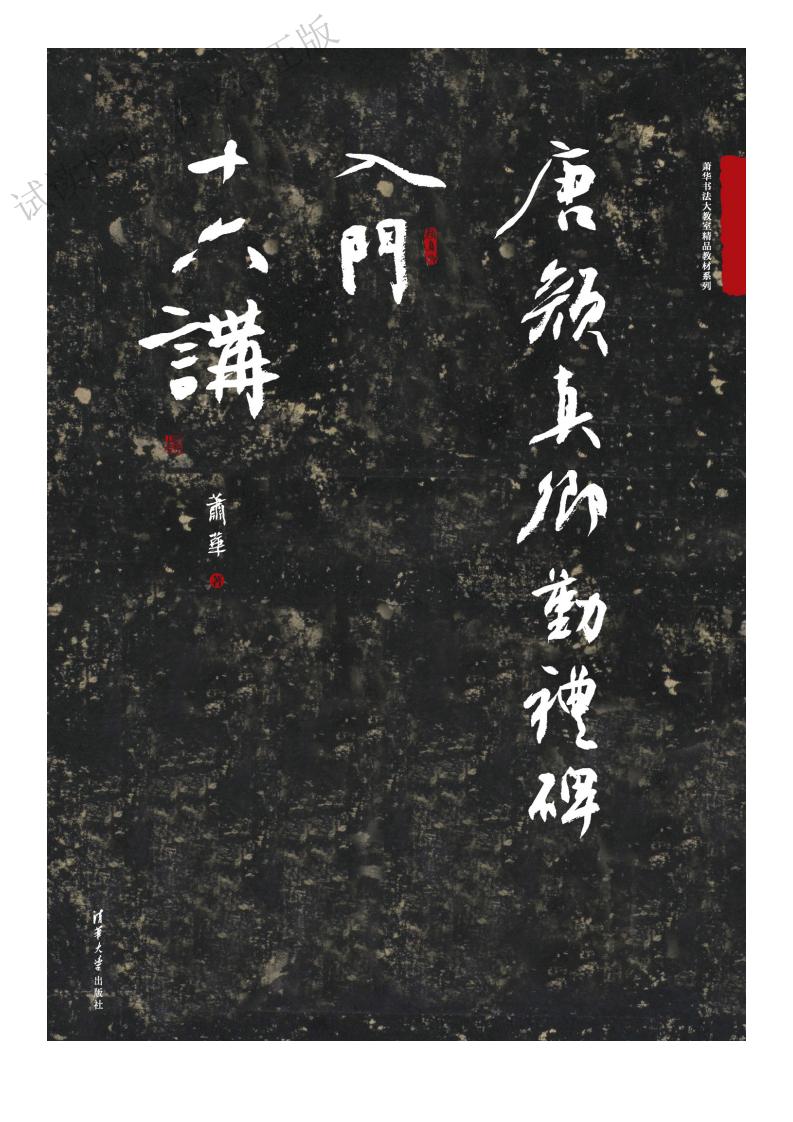 萧华书法大教室精品教材系列
唐顏真卿勤禮碑
入門
十六講
蕭華
著
清華大学出版社